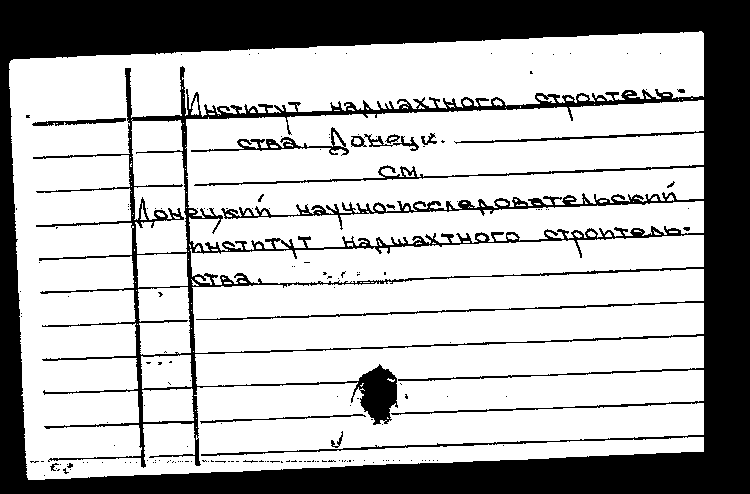 Институт надшахтного строитель-
ства. Донецк.
см.
Донецкий научно-исследовательский
институт надшахтного строитель-
ства.